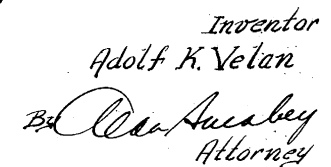 Inventor
Adolf K. Velan
By Alan Swabey
Attorney